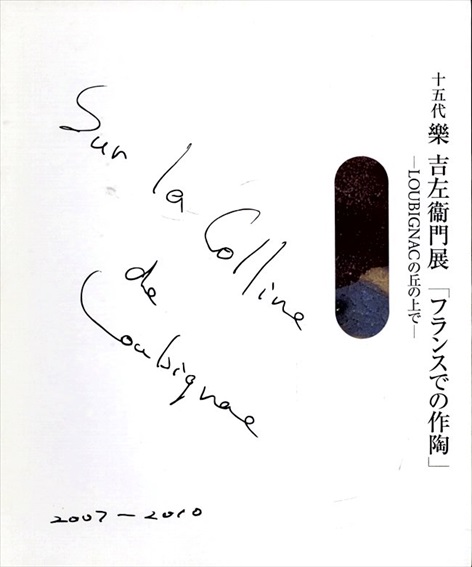 十五代 樂 吉左衞門展 「フランスでの作陶」
―LOUBIGNACの丘の上で―
Sur la Colline
de
Loubignac
2007―2010